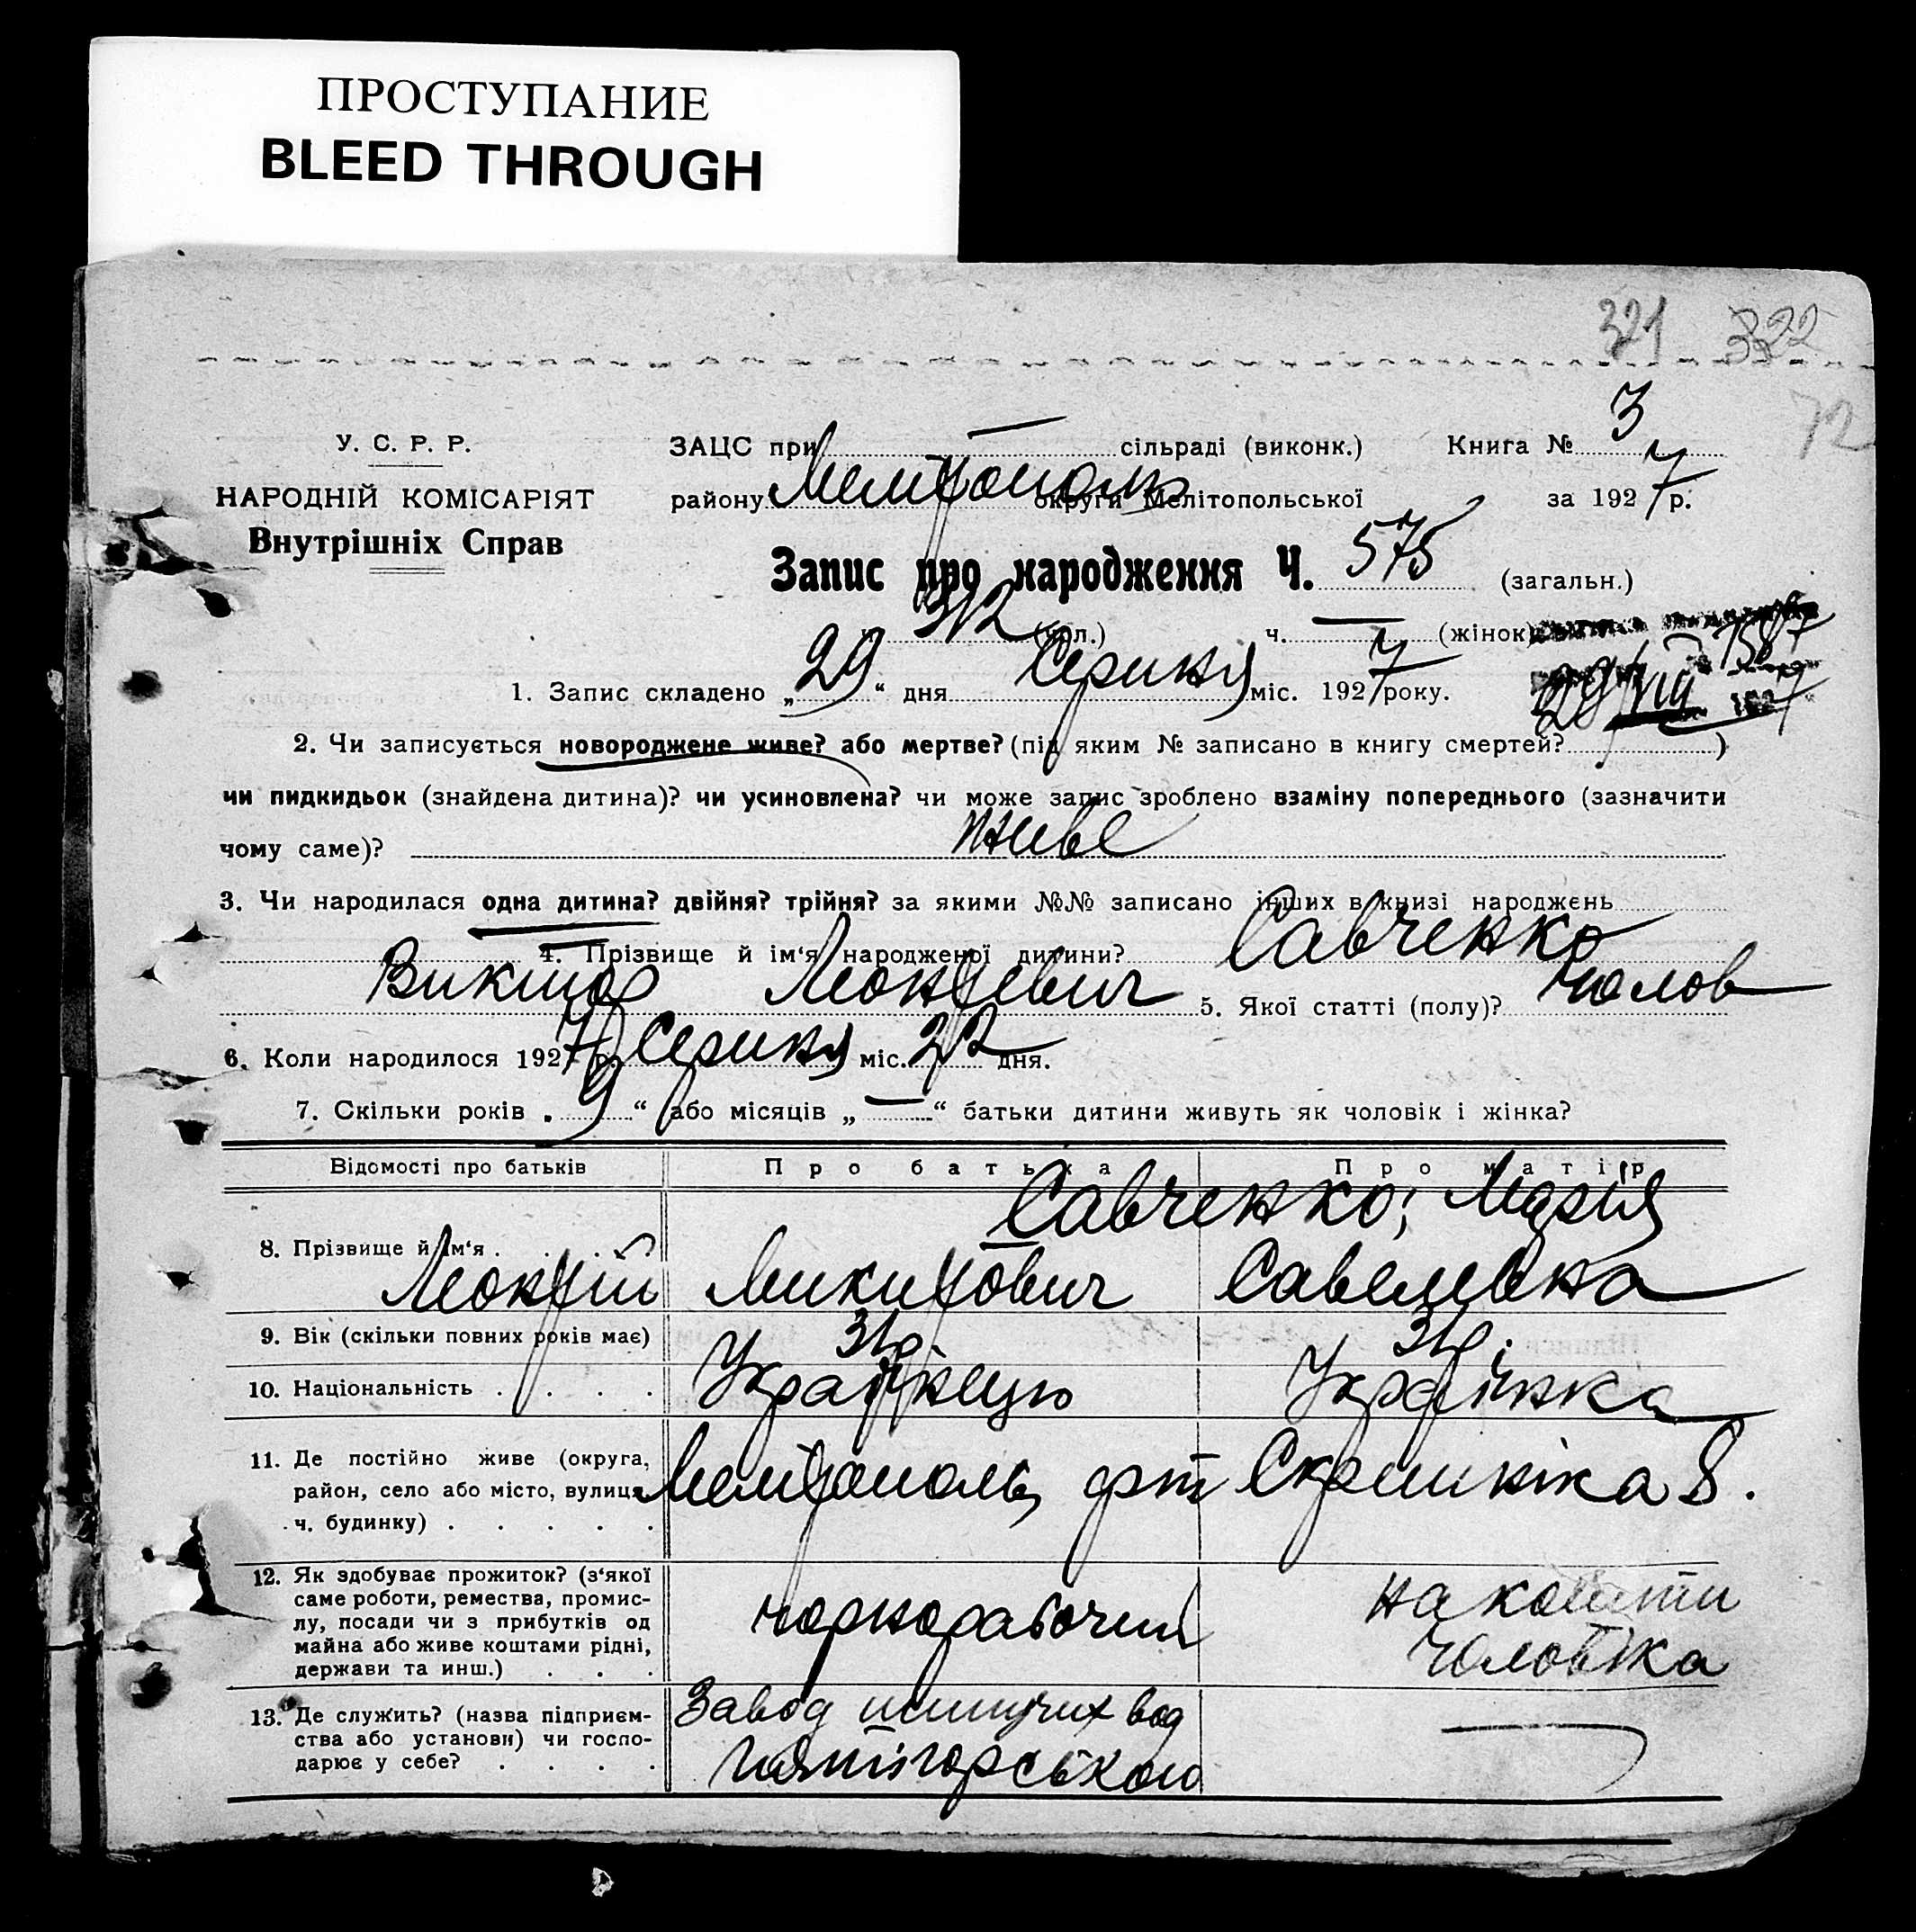 ПРОСТУПАНИЕ
BLEED THROUGH
321 322
72
У. С. Р. Р. ЗАЦС при — сільраді (виконк.) Книга № 3
НАРОДНІЙ КОМІСАРІЯТ району Мелітополь округи Мелітопольської за 1927 р.
Внутрішніх Справ
Запис про народження Ч. 575 (загальн.)
ч. 312 (чол.) ч. — (жінок)
1. Запис складено „29“ дня Серпня міс. 1927 року. 29/VIII
2. Чи записується новороджене живе? або мертве? (під яким № записано в книгу смертей? )
чи пидкидьок (знайдена дитина)? чи усиновлена? чи може запис зроблено взаміну попереднього (зазначити
чому саме)? живе
3. Чи народилася одна дитина? двійня? трійня? за якими №№ записано інших в книзі народжень
— 4. Прізвище й ім‘я народженої дитини? Савченко
Виктор Леонтєвич 5. Якої статті (полу)? чолов
6. Коли народилося 1927 р. Серпня міс. 22 дня.
7. Скільки років „9“ або місяців „—“ батьки дитини живуть як чоловік і жінка?
Відомості про батьків Про батька Про матір
Савченко; Марія
8. Прізвище й ім‘я . . . .
Леонтій Микитович Савелівна
9. Вік (скільки повних років має) 31р 31р.
10. Національність . . . . Українець Українка
11. Де постійно живе (округа,
район, село або місто, вулиця Мелітополь, Скрипніка 8.
ч. будинку) . . . . .
12. Як здобуває прожиток? (з‘якої
саме роботи, ремества, промис-
лу, посади чи з прибутків од
майна або живе коштами рідні,
держави та инш.) . . .
чорнорабочий на кошти
чоловіка
13. Де служить? (назва підприєм-
ства або установи) чи госпо-
дарює у себе? . . . .
Завод шипучих вод —
Пятігорського